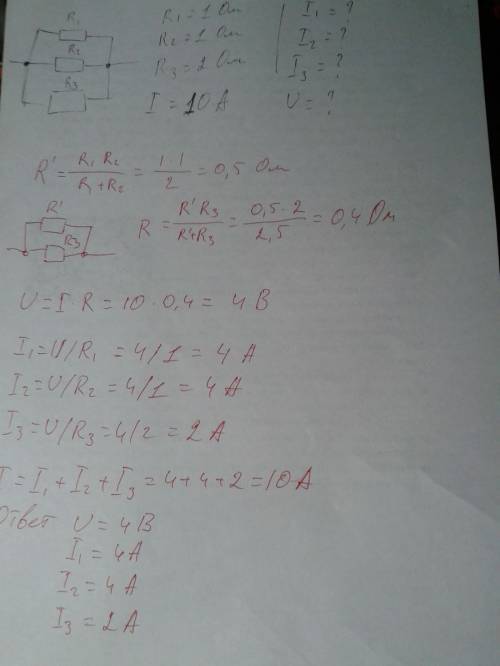 R₁ R₁ = 1 Ом I₁ = ?
R₂ R₂ = 1 Ом I₂ = ?
R₃ R₃ = 2 Ом I₃ = ?
I = 10 А U = ?
R' = R₁ R₂ / R₁ + R₂ = 1·1 / 2 = 0,5 Ом
R'
R₃ R = R' R₃ / R' + R₃ = 0,5·2 / 2,5 = 0,4 Ом
U = I·R = 10·0,4 = 4 В
I₁ = U/R₁ = 4/1 = 4 А
I₂ = U/R₂ = 4/1 = 4 А
I₃ = U/R₃ = 4/2 = 2 А
I = I₁ + I₂ + I₃ = 4+4+2 = 10 А
Ответ U = 4 В
I₁ = 4 А
I₂ = 4 А
I₃ = 2 А